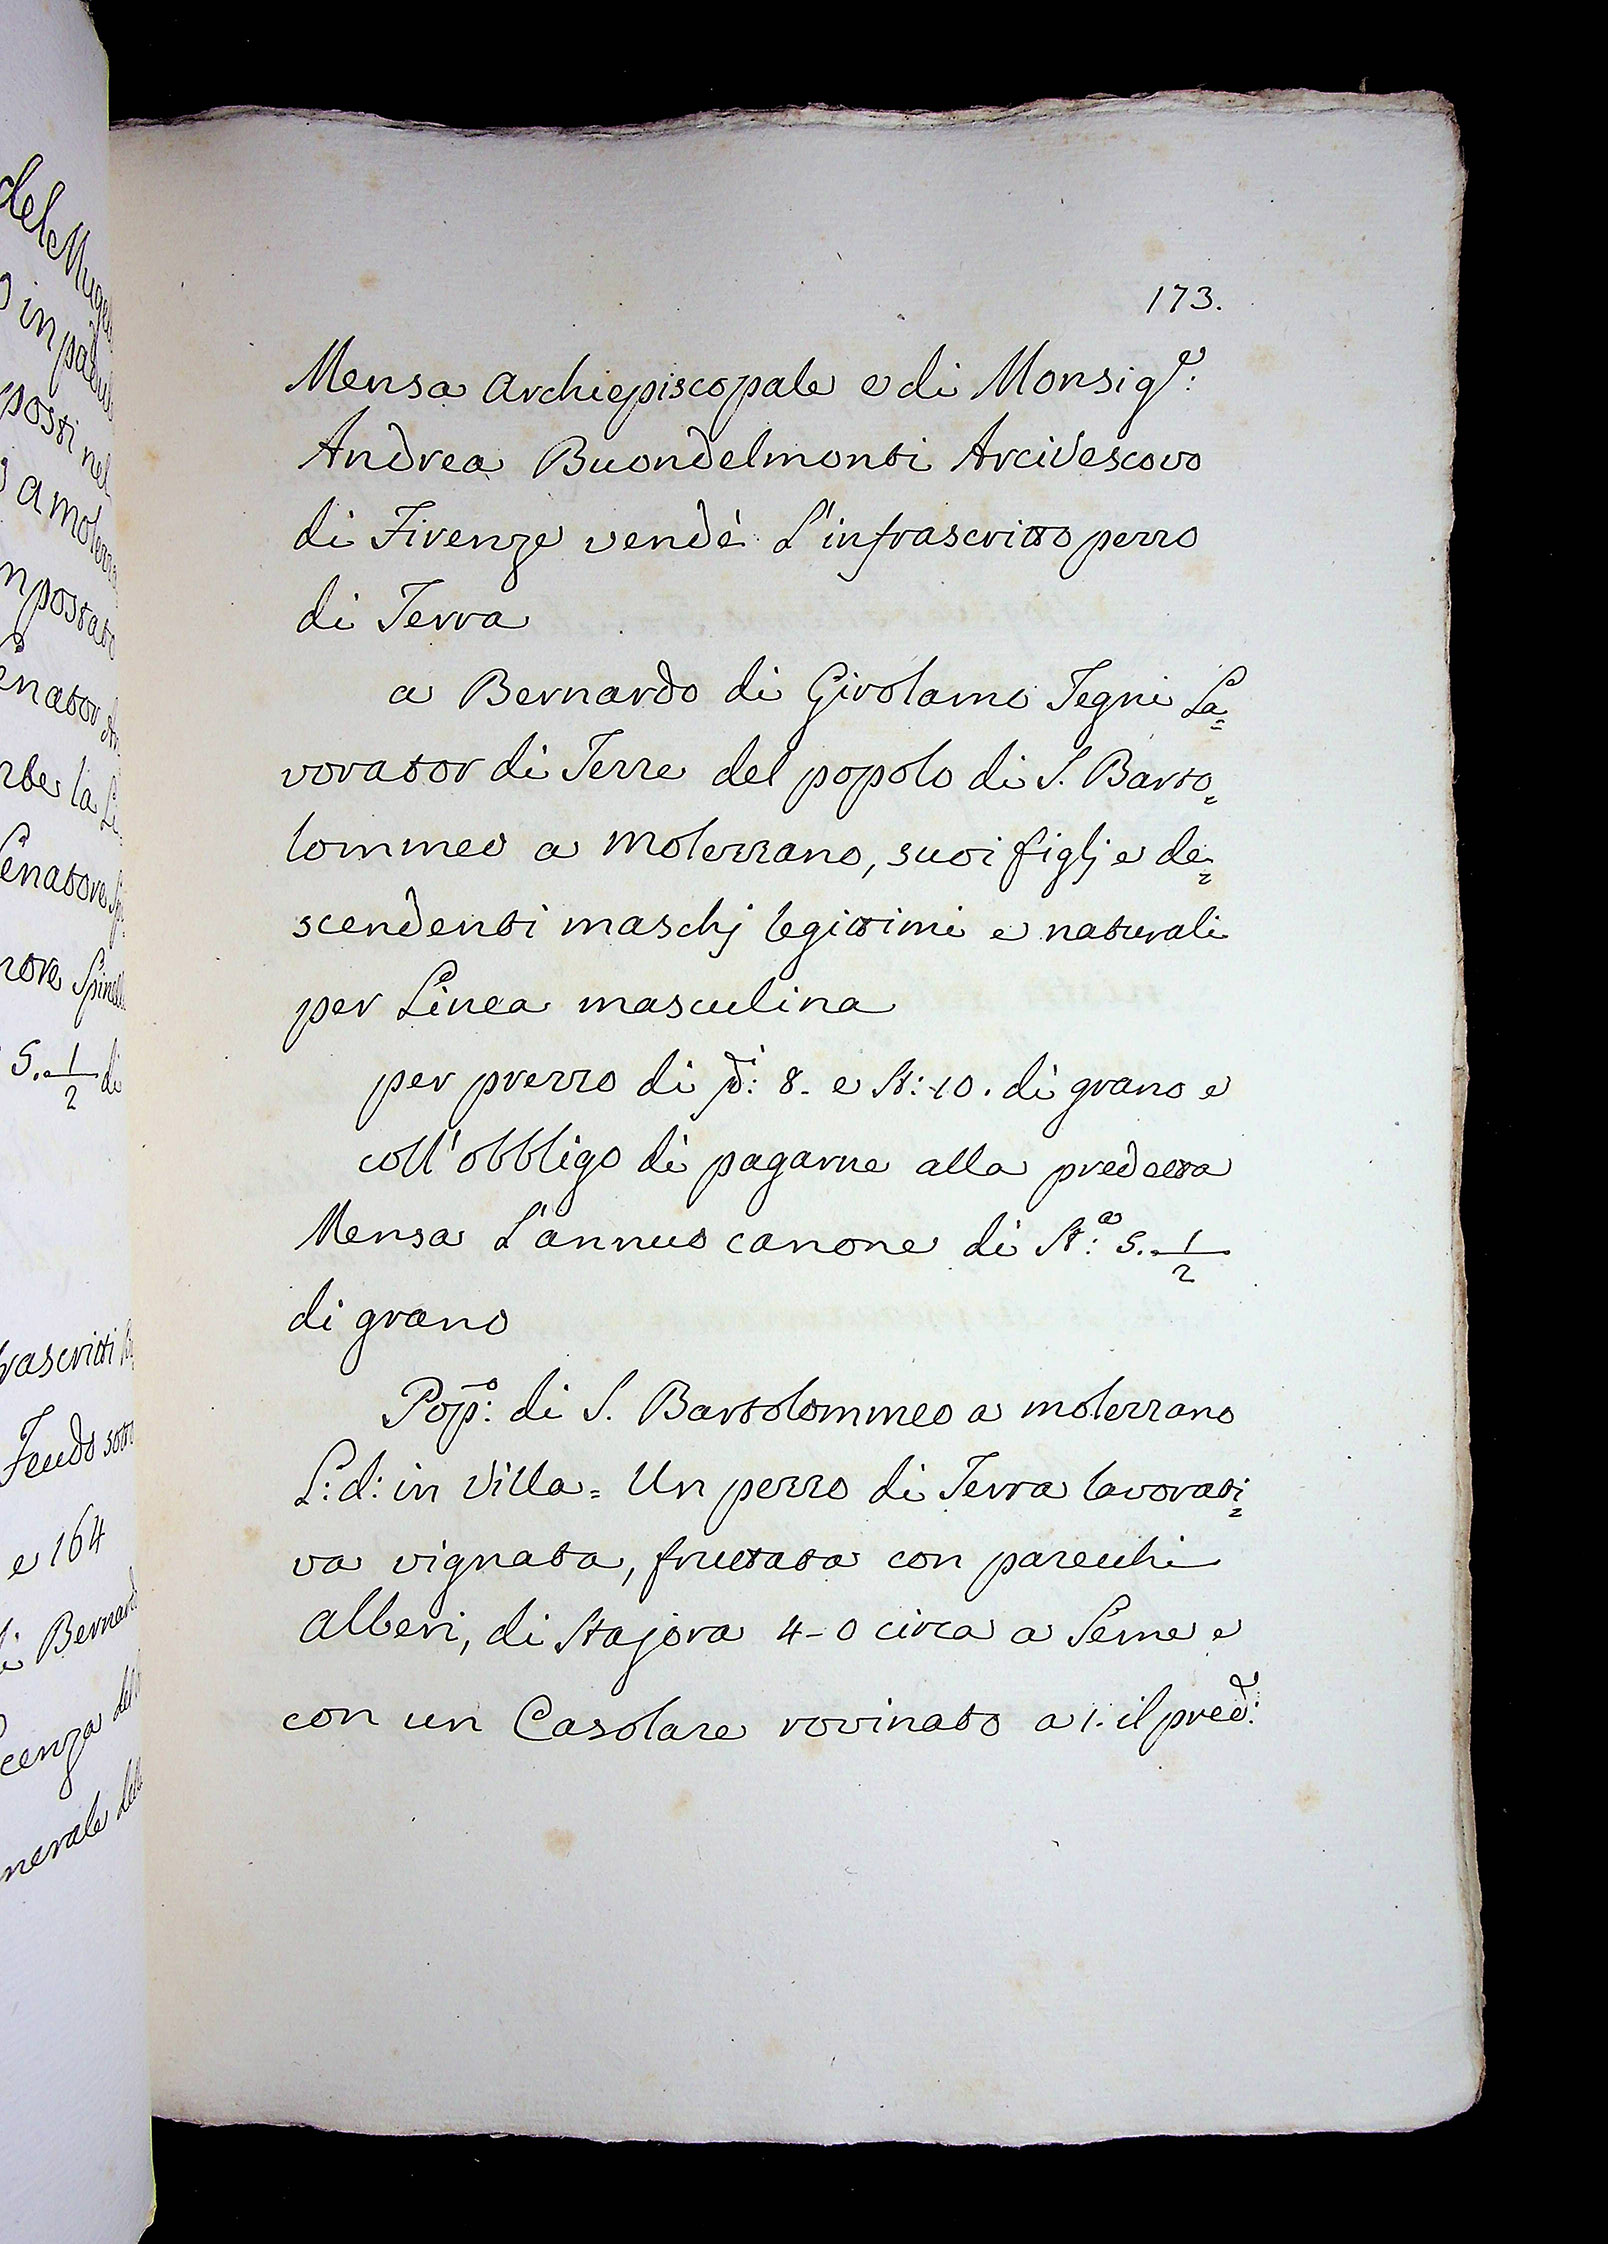 del Mugel
in padule
posti nel
a molezza
mpostato
enator
rbe la Li
Senatore Spi
nore Spinelli
5. 1/2 di
rascritti
Feudo sott
e 164
di Bernard
cenza del
nerale della
173.
Mensa Archiepiscopale e di Monsig.e:
Andrea Buondelmonti Arcivescovo
di Firenze vendè L'infrascritto pezzo
di Terra
a Bernardo di Girolamo Tegni La=
vorator di Terre del popolo di S. Barto=
lommeo a molezzano, suoi figlj e de=
scendenti maschj legittimi e naturali
per Linea masculina
per prezzo di 8. e St: 10. di grano e
coll'obbligo di pagarne alla predetta
Mensa L'annuo canone di St:a 5. 1/2
di grano
Pop:o di S. Bartolommeo a molezzano
L: d: in Villa = Un pezzo di Terra lavorati=
va vignata, fruttata con parecchi
alberi, di Stajora 4-0 circa a Seme e
con un Casolare rovinato a 1. il pred: